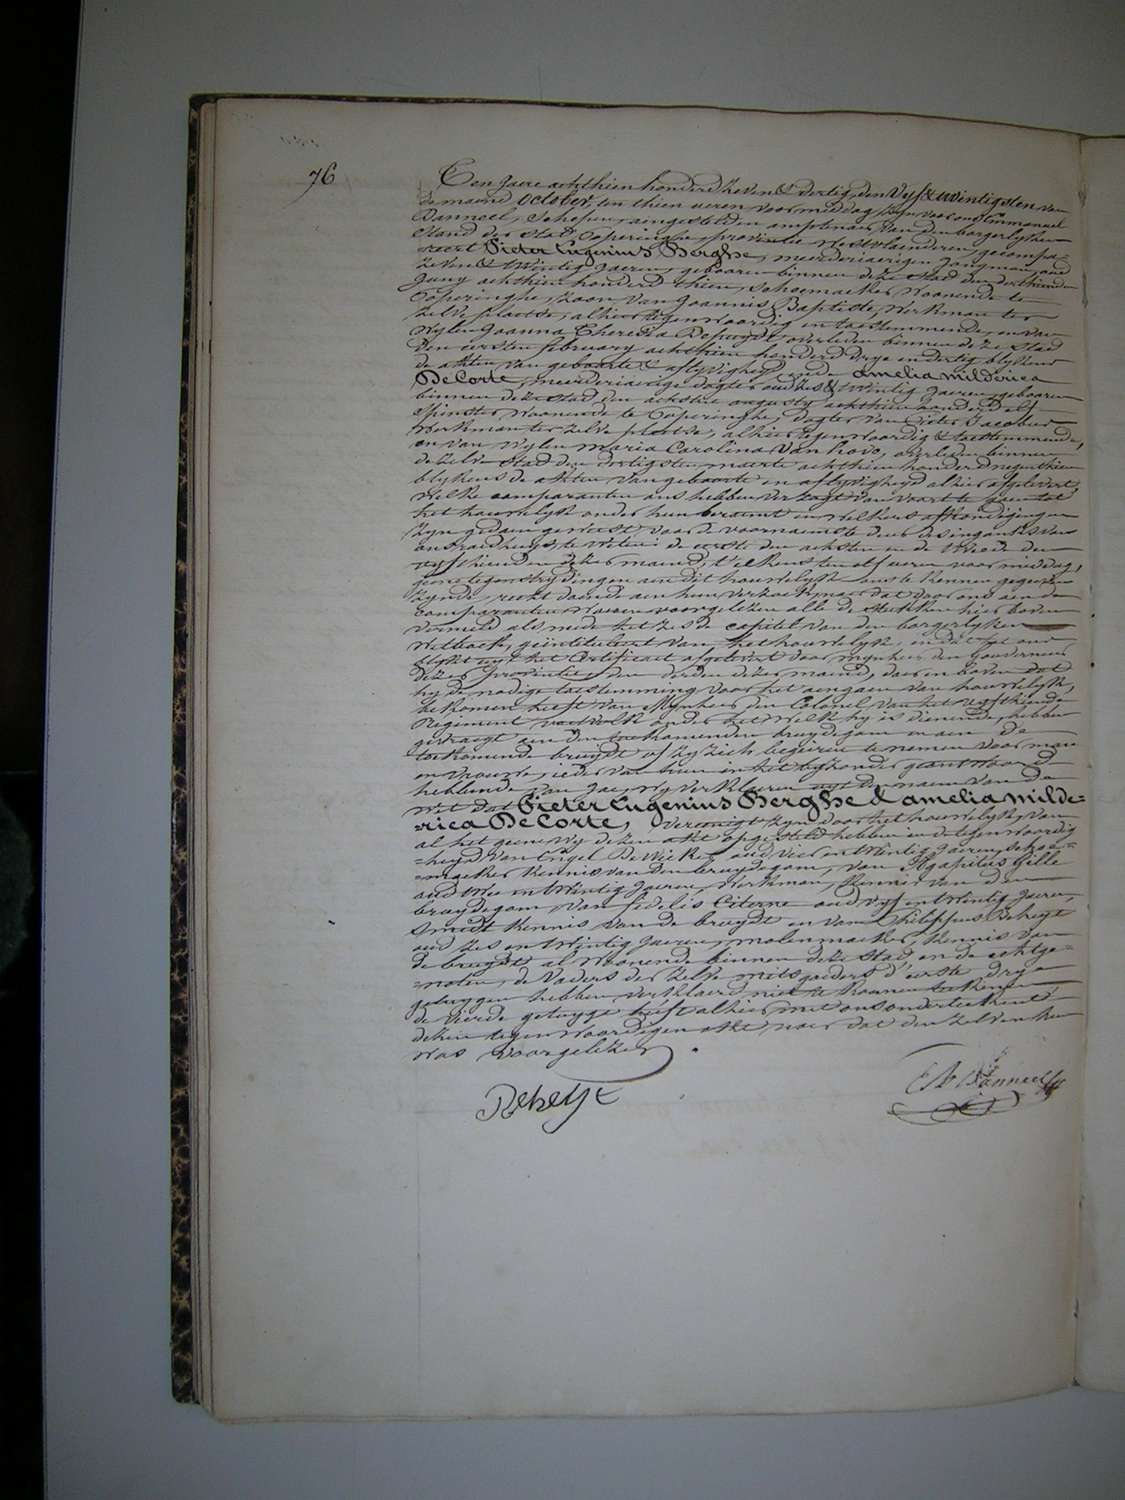 76
Ten Jaere achthien honderd zeven & dertig den Vyf & twintigsten van
de maend October, ten thien ueren voor middag, zyn voor ons Emmanuel
Vanneel, Schepen, aengestelden amptenaer van den borgerlyken
Stand der Stad Poperinghe provintie Westvlaenderen, gecompa=
=reert Pieter Eugenius Berghe, meerderjaerigen jongman, oud
zeven & twintig Jaeren, gebooren binnen deze Stad den derthienden
Juny achthien honderd thien, Schoenmaeker, woonende te
Poperinghe, zoon van Joannes Baptiste, werkman ter
zelve plaetse, alhier tegenwoordig en toestemmende, en van
wylen Joanna Theresia overleden binnen deze Stad
den eersten february achthien honderd drye en dertig blykens
de akten van geboorte & aflyvigheyd, ende Amelia Milderica
De Corte, meerderjaerige dogter oud zes & twintig Jaeren, gebooren
binnen deze Stad, den achsten augusty achthien honderd elf
Spinster, woonende te Poperinghe, dogter van Pieter Jacobus
werkman ter zelve plaetse, alhier tegenwoordig & toestemmende,
en van wylen Maria Carolina Van hove, overleden binnen
dezelve Stad den dertigsten maerte achthien honderd negenthien
blykens de akten van geboorte en aflyvigheyd alhier afgelevert,
welke comparanten ons hebben verzogt van voort te gaen tot
het houwelyk onder hun beraemt en welkers afkondigingen
zyn gedaen geweest voor de voornaemste deur & ingank van
ons raedhuys, te weten: de eerste den achsten en de tweede den
vyfthienden dezer maend, t'elkens ten elf ueren voor middag,
geene tegenstrydingen aen dit houwelyk ons te kennen gegeven
zynde, recht doende aen hun verzoek, naer dat door ons aen de
comparanten waeren voorgelezen alle de stukken hier boven
vermeld als mede het zesde capitel van den borgerlyken
wetboek, geïntituleert van het houwelyk, en dat het ons
blykt uyt het Certificaet afgelevert door mynheer den Gouverneur
dezer Provintie, den derden dezer maend, daer en boven dat
hy de nodige toestemming voor het aengaen van houwelyk,
bekomen heeft van Mynheer den Colonel van het vyfthiende
Regiment voetvolk onder het welk hy is dienende, hebben
gevraegt aen den toekomenden bruydegom en aen de
toekomende bruydt of zy zich begeiren te nemen voor man
en vrouwe, ieder van hun in het byzonder geantwoord
hebbende van Jae, wy verklaeren uyt den naem van de
wet dat Pieter Eugenius Berghe & Amelia Milde=
=rica De Corte, vereenigt zyn door het houwelyk, van
al het geene wy dezen akte opgesteld hebben in de tegenwoordig
=heyd van Engel De oud vier en twintig Jaeren, Schoen=
=maeker kennis van den bruydegom, van Agapitus Gille
oud twee en twintig Jaeren, werkman, kennis van den
bruydegom, van fidelis Citerne oud vyf en twintig Jaeren,
Smidt kennis van de bruydt en van Philippus Reheyt
oud zes en twintig Jaeren, molenmaeker, kennis van
de bruydt al woonende binnen deze Stad, en de echtge=
=noten, de vaders der zelve mitsgaeders d'eerste drye
getuygen hebben verklaerd niet te konnen teekenen
de vierde getuyge heeft alhier met ons onderteekent
dezen tegenwoordigen akte, naer dat den zelven hun
was voorgelezen
Reheyt
E Vanneel